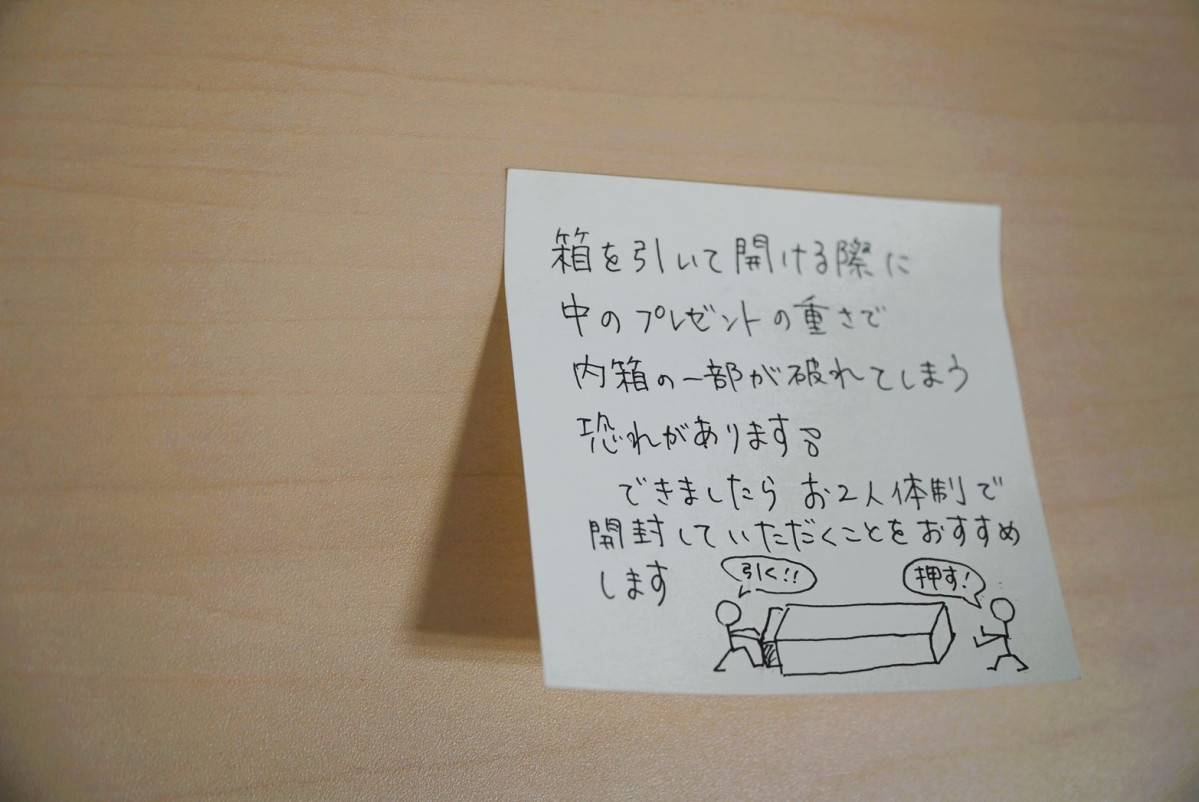 箱を引いて開ける際に
中のプレゼントの重さで
内箱の一部が破れてしまう
恐れがあります。
できましたら お2人体制で
開封していただくことをおすすめ
します
引く!!
押す!